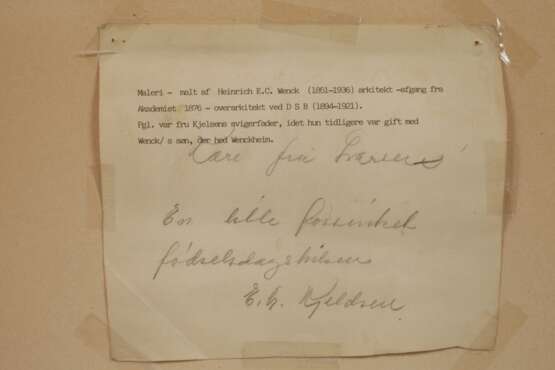 Maleri - malt af Heinrich E.C. Wenck (1851-1936) arkitekt -afgang fra
Akademiet 1876 - overarkitekt ved D S B (1894-1921).
Pgl. var fru Kjelsens svigerfader, idet hun tidligere var gift med
Wenck/ s søn, der hed Wenckheim.
Kære fru Larsen
En lille forsinket
fødselsdagshilsen
E. h. Kjeldsen